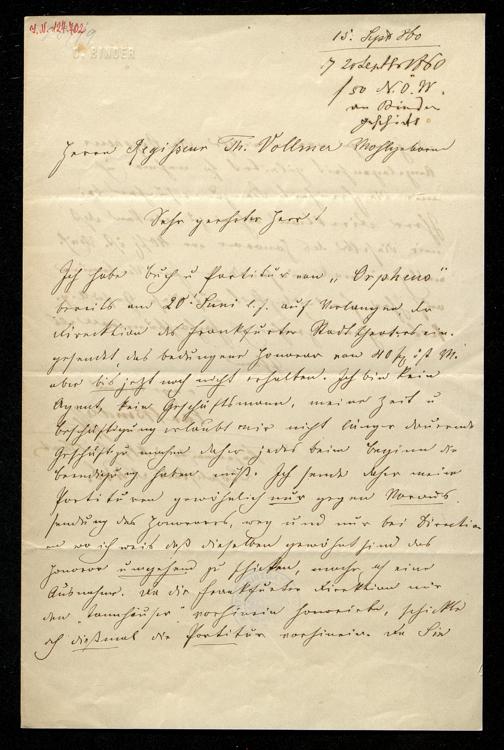 I.N. 124.402
C. BINDER
15. Sept 860
20 Septbr 1860
f 50 N. Ö. W.
an Binder
geschickt
Herrn Regisseur Th. Vollmer Wohlgeboren
Sehr geehrter Herr!
Ich habe Buch u Partitur von „Orpheus"
bereits am 20t Juni l. J. auf Verlangen der
Direktion des Frankfurter Stadttheaters ein-
gesendet, das bedungene Honorar von 40 f öst. W.
aber bis jetzt noch nicht erhalten. Ich bin kein
Agent, kein Geschäftsmann, meine Zeit u
Beschäftigung erlaubt mir nicht länger dauernde
Geschäfte zu machen daher jedes beim Beginn die
Beendigung haben muß. Ich sende daher meine
Partituren gewöhnlich nur gegen Voraus-
sendung des Honorars, weg und nur bei Direktion
en wo ich weis daß dieselben gewöhnt sind das
Honorar umgehend zu schicken, mache ich eine
Ausnahme. Da die Frankfurter Direktion mir
den „Tannhäuser" vorhinein honorirte, schickte
ich dießmal die Partitur vorhinein. Da Sie